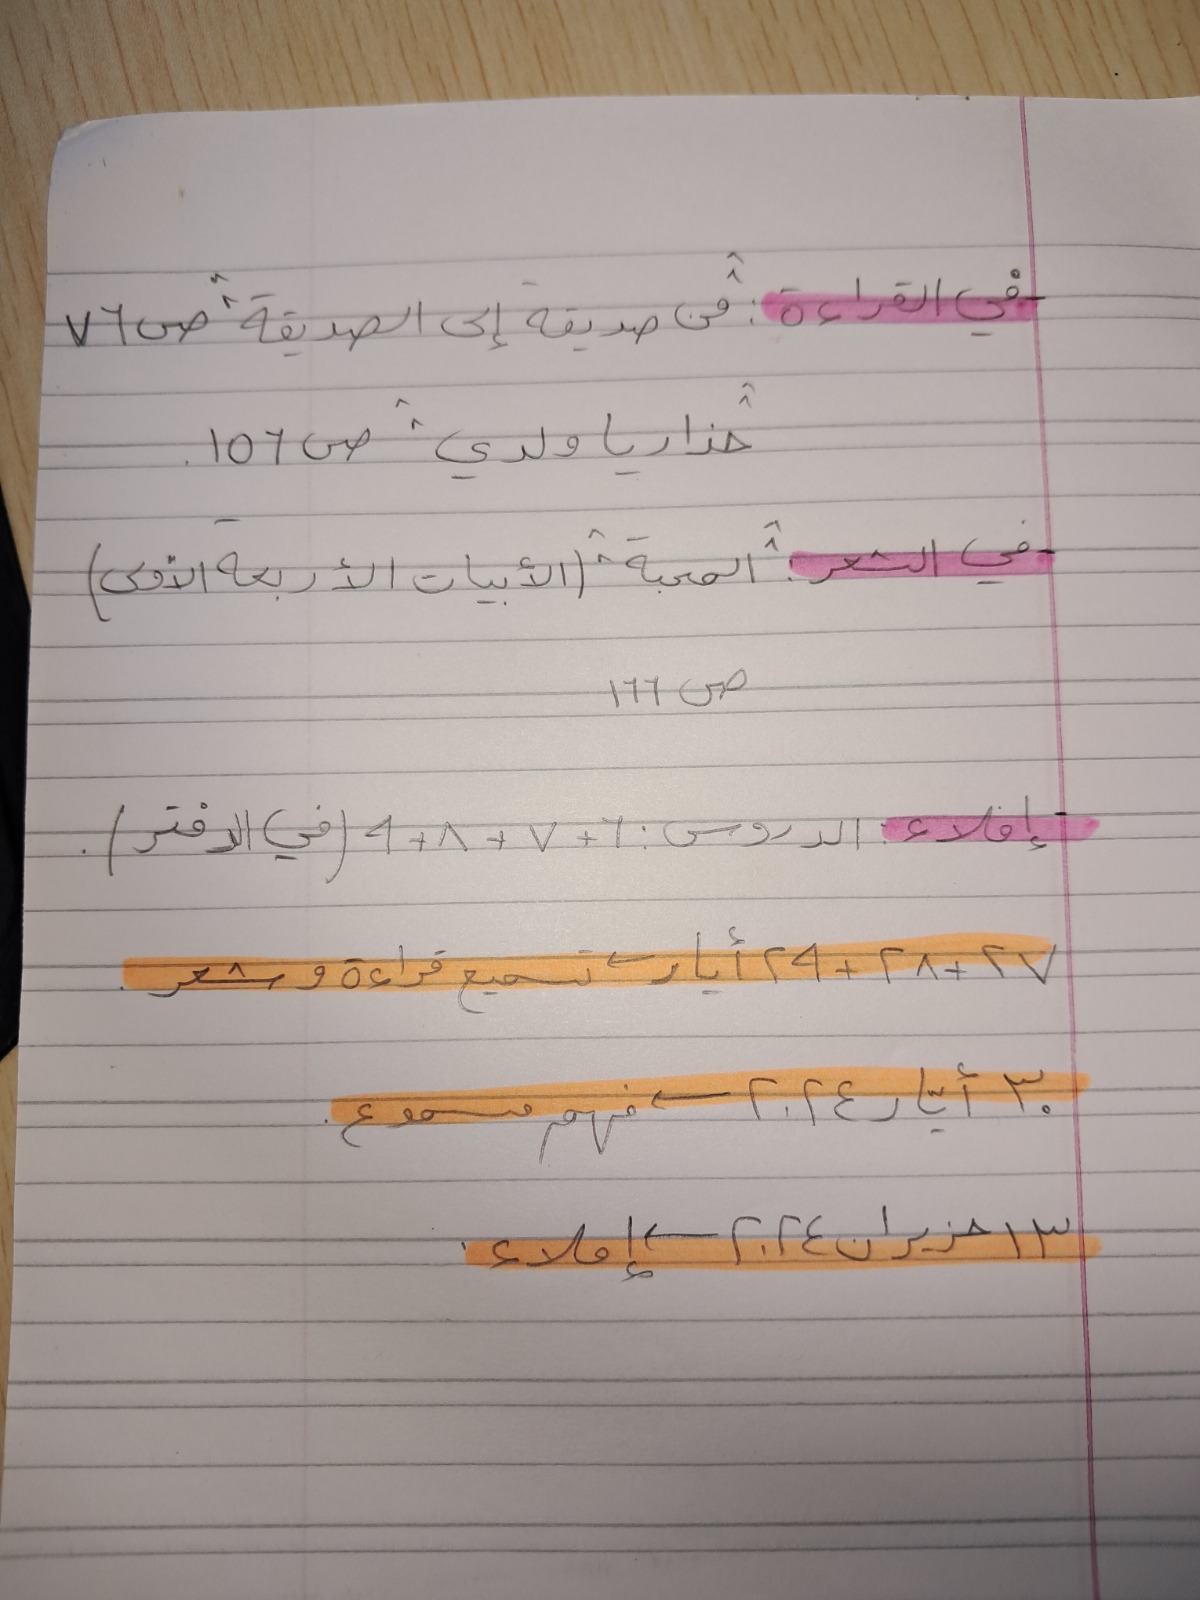 - في القراءة: "من صديقة إلى الصديقة" ص ٧٦
"حذار يا ولدي" ص ١٥٦.
- في الشعر: "المحبة" (الأبيات الأربعة الأولى)
ص ١٦٦
- إملاء: الدروس: ٦+٧+٨+٩ (في الدفتر).
٢٧+٢٨+٢٩ أيار ← تسميع قراءة و شعر.
٣٠ أيّار ٢٠٢٤ ← فهم مسموع.
٣١ حزيران ٢٠٢٤ ← إملاء.